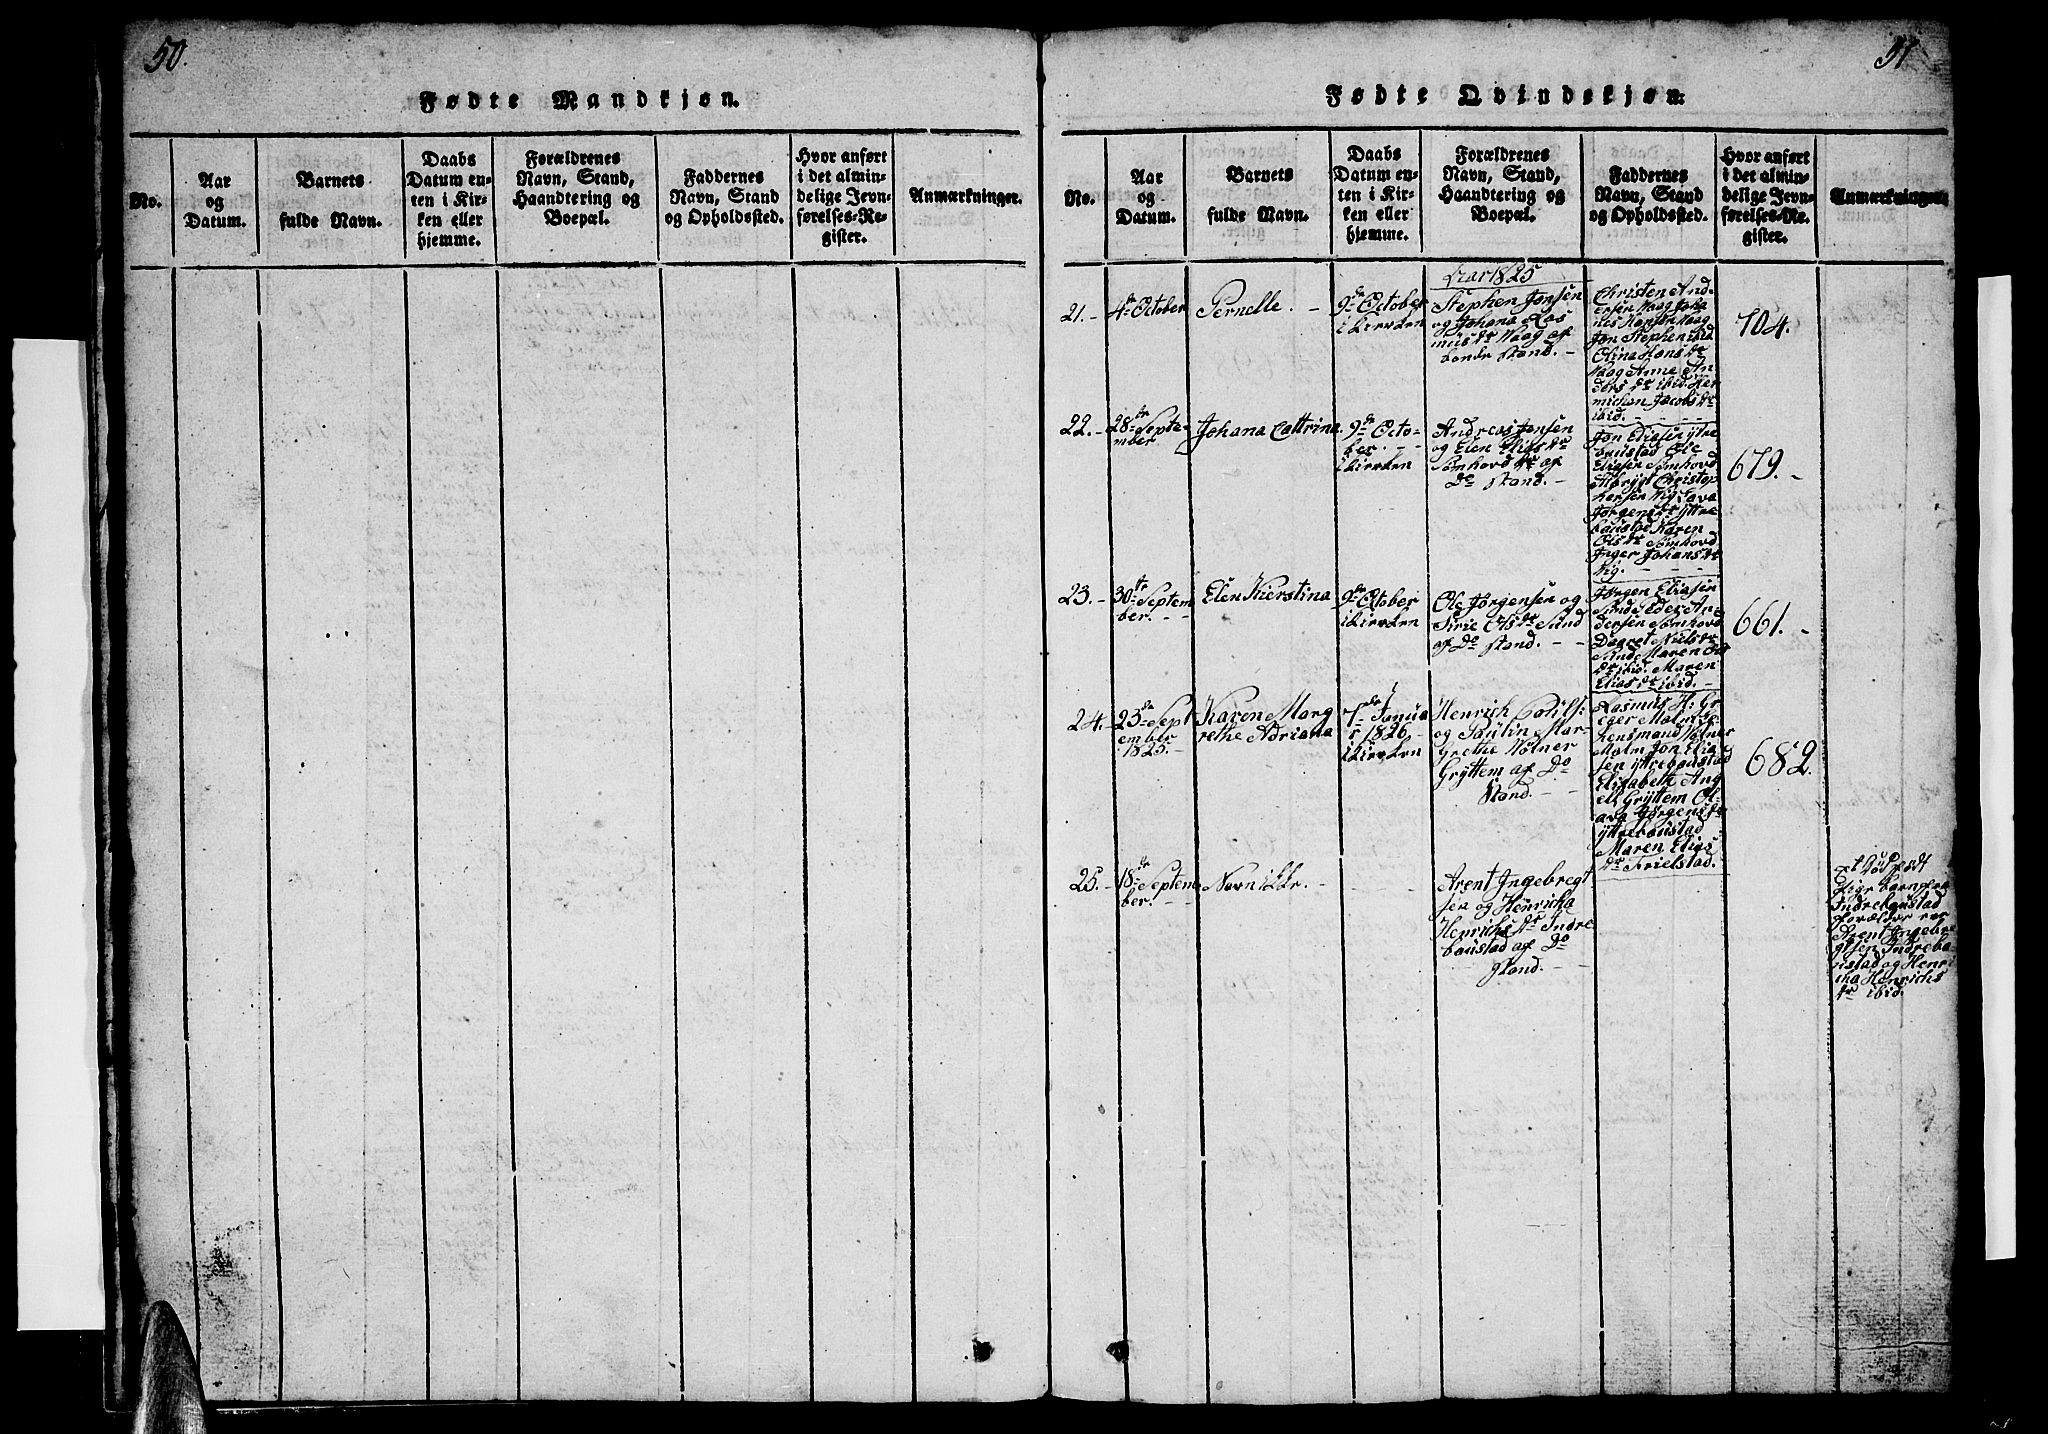 50.
Fødte Mandkjøn.
No.
Aar
og
Datum.
Barnets
fulde Navn.
Daabs
Datum en-
ten i Kir-
ken eller
hjemme.
Forældrenes
Navn, Stand,
Haandtering og
Boepæl.
Faddernes
Navn, Stand
og Opholdssted.
Hvor anført
i det almin-
delige Jevn-
førelses-Re-
gister.
Anmærkninger.
51
Fødte Qvindekjøn.
No.
Aar
og
Datum.
Barnets
fulde Navn.
Daabs
Datum en-
ten i Kir-
ken eller
hjemme.
Forældrenes
Navn, Stand,
Haandtering og
Boepæl.
Faddernes
Navn, Stand
og Opholdssted.
Hvor anført
i det almin-
delige Jevn-
førelses-Re-
gister.
Anmærkninger.
Aar 1825
21.-
4de October
Pernelle. -
9de October
i Kircken
Stephen Jonsen
og Johana Ras
musdr Vaag af
bonde Stand. -
Christen And
ersen Vaag Joha
nes Hansen Vaag
Jon Stephen ibid
Olina Hansdr
Vaag Anne An
dersdr ibid.
michen Jacobsdr
ibid. - - -
704.
22.-
28de Septe
mber
Johana Cattrina.
9de Octo-
ber. - -
i Kircken
Andreas Jonsen
og Elen Eliasdr
Sømhovd af
Do Stand. -
Jon Eliasen ytre
baustad Ole
Eliasen Sømhovd
Christop
hersen Vig
Jørgensdr yttre
baustad Karen
Olsdr Sømhovd
Inger Johansdr
Vig. - - -
679. -
23.-
30te Septem
ber. - -
Elen Kierstina
9de October
i Kircken
Ole Jørgensen og
Sirie Olsdr Sund
af Do Stand. - -
Jørgen Eliasen
Sund Eder An
dersen Sømhovd
Dagret Nielsdr
Sund Maren Ols
dr ibid. Maren
Eliasdr ibid. -
661. -
24.-
23de Sept
ember
1825. -
Karen Marg
rethe Adriana
1de Janua
r 1826 -
i Kircken
Henrik
og Paulin Mar-
grethe Volner
Gryttem af Do
Stand. - -
Rasmus H: Gr
eger Malm
Lensmand Volner
Malm Jon Elia
sen yttrebaustad
Elisabeth Ang
ell Gryttem Ol-
ava Jørgensdr
yttrebaustad
Maren Elias
dr Frielstad.
682.
25. -
18de Septem
ber. - -
Navnikkr. -
Arent Ingebregt
sen og Henricha
Henrichsdr Indre
baustad af Do
Stand. - -
Et Dødfødt
Pige barn fra
Indrebaustad
Forælder var
Arent Ingebre
gtsen Indreba
ustad og Henri
cha Henrichs
dr ibid.